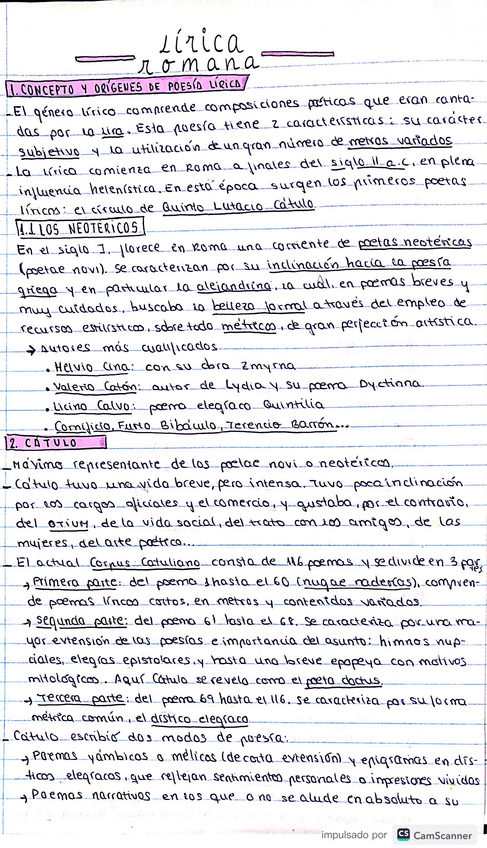 lírica
romana
1. CONCEPTO Y ORÍGENES DE POESÍA LÍRICA
- El género lírico comprende composiciones poéticas que eran canta-
das por la lira. Esta poesía tiene 2 características: su carácter
subjetivo y la utilización de un gran número de metros variados
- La lírica comienza en Roma a finales del siglo II a.c, en plena
influencia helenística. En esta época surgen los primeros poetas
líricos: el círculo de Quinto Lutacio Cátulo
1.1 LOS NEOTÉRICOS
En el siglo I, florece en Roma una corriente de poetas neotéricos
(poetae novi). Se caracterizan por su inclinación hacia la poesía
griega y en particular la alejandrina, la cual, en poemas breves y
muy cuidados, buscaba la belleza formal a través del empleo de
recursos estilísticos, sobre todo métricos, de gran perfección artística.
→ Autores más cualificados
• Helvio Cina: con su obra Zmyrna
• Valerio Catón: autor de Lydia y su poema Dyctinna
• Licino Calvo: poema elegiaco Quintilia
• Cornificio, Furio Bibáculo, Terencio Barrón...
2. CÁTULO
- Máximo representante de los poetae novi o neotéricos.
- Cátulo tuvo una vida breve, pero intensa. Tuvo poca inclinación
por los cargos oficiales y el comercio, y gustaba, por el contrario,
del OTIUM, de la vida social, del trato con los amigos, de las
mujeres, del arte poético...
- El actual Corpus Catuliano consta de 116 poemas y se divide en 3 partes
→ Primera parte: del poema 1 hasta el 60 (nugae naderías), compren-
de poemas líricos cortos, en metros y contenidos variados.
→ Segunda parte: del poema 61 hasta el 68. Se caracteriza por una ma-
yor extensión de las poesías e importancia del asunto: himnos nup-
ciales, elegías epistolares, y hasta una breve epopeya con motivos
mitológicos. Aquí Cátulo se revela como el poeta doctus.
→ Tercera parte: del poema 69 hasta el 116. Se caracteriza por su forma
métrica común, el dístico elegiaco
- Cátulo escribió dos modos de poesía:
→ Poemas yámbicos o mélicos (de corta extensión) y epigramas en dís-
ticos elegiacos, que reflejan sentimientos personales o impresiones vividas
→ Poemas narrativos en los que o no se alude en absoluto a su
impulsado por CS CamScanner